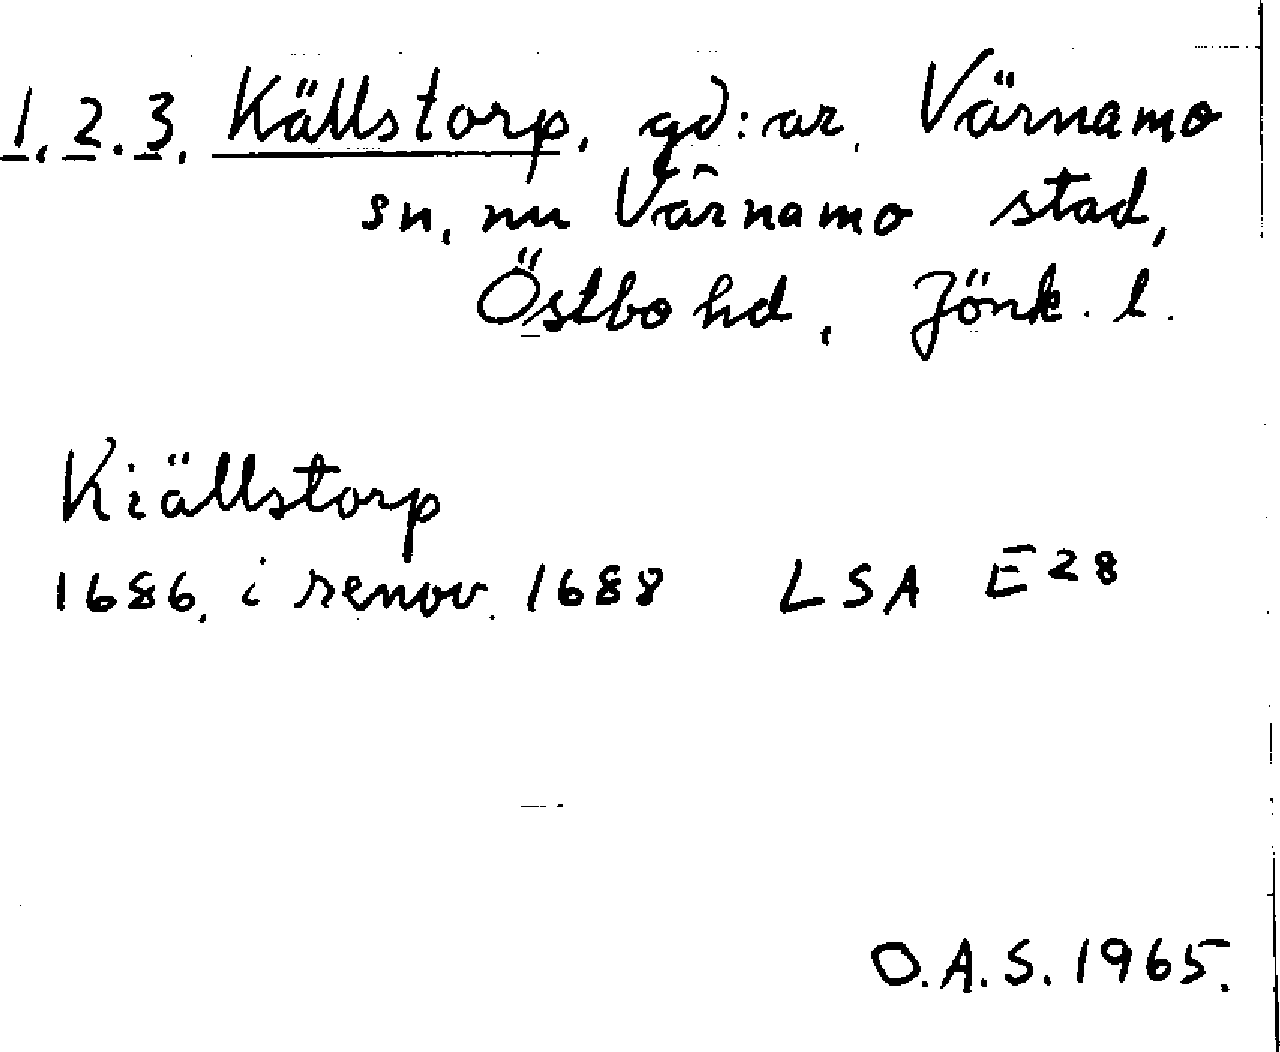 1. 2. 3. Källstorp, gd:ar, Värnamo
sn, nu Värnamo stad,
Östbo hd, Jönk. l.
Kiällstorp
1686, i renov. 1688 LSA E28
O.A.S. 1965.